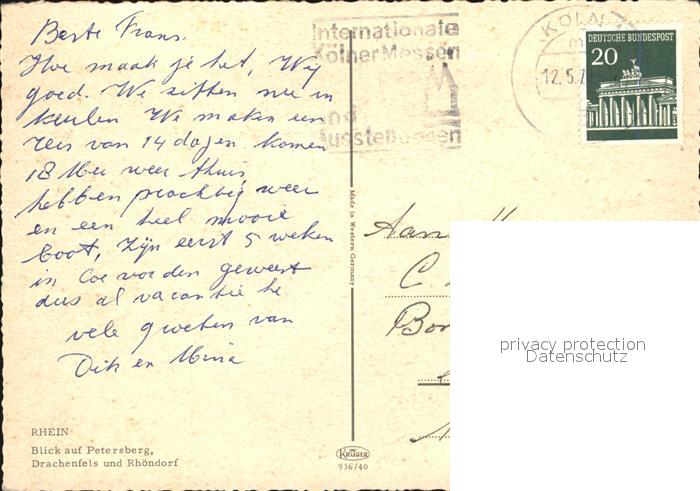 Beste Frans.
Hoe maak je het, Wij
goed. We zitten nu in
keulen We maken een
reis van 14 dagen. komen
18 Mei weer thuis,
hebben prachtig weer
en een heel mooie
boot, Zijn eerst 5 weken
in Coevorden geweest
dus al vacantie he
vele groeten van
Dik en Mina
RHEIN
Blick auf Petersberg,
Drachenfels und Rhöndorf
Made in Western Germany
KRÜGER
936/40
Internationale
Kölner Messen
und
Ausstellungen
KÖLN
12.5.7
DEUTSCHE BUNDESPOST
20
Aan
C.
Bor
privacy protection
Datenschutz